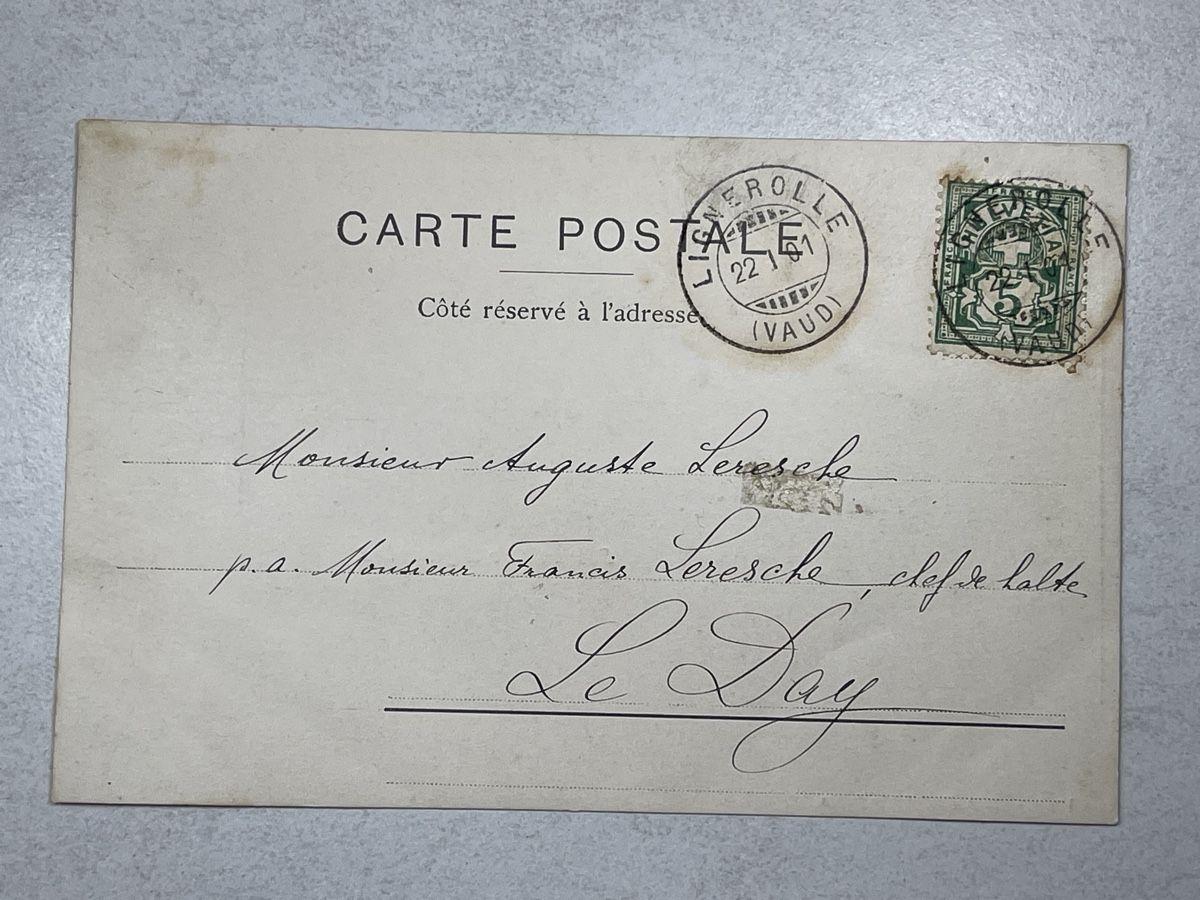 CARTE POSTALE
Côté réservé à l'adresse.
LIGNEROLLE
22 I 01
(VAUD)
LIGNEROLLE
22 I
(VAUD)
HELVETIA
FRANCO
5
Monsieur Auguste Leresche
p.a. Monsieur Francis Leresche, chef de halte
Le Day